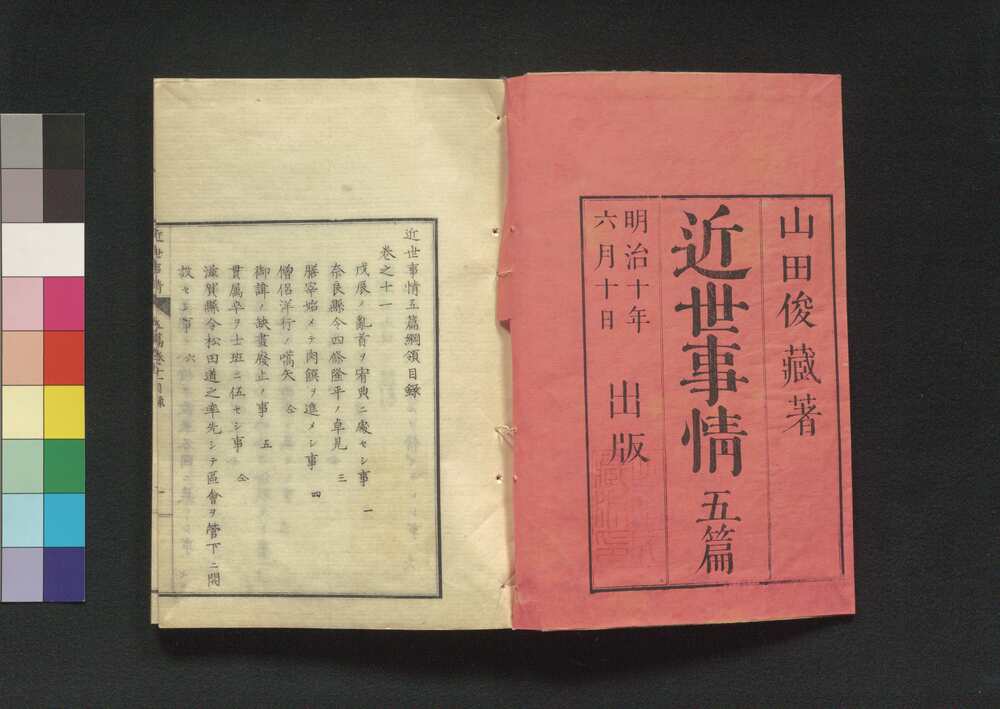 山田俊藏著
近世事情 五篇
明治十年
六月十日
出版
近世事情五篇綱領目録
卷之十一
戊辰ノ亂首ヲ宥典ニ處セシ事 一
奈良縣令四條隆平ノ卓見 三
膳宰始メテ肉饌ヲ進メシ事 四
僧侶洋行ノ嚆矢 仝
御諱ノ缺畫廢止ノ事 五
貫属卒ヲ士班ニ伍セシ事 仝
滋賀縣令松田道之率先シテ區會ヲ管下ニ開
設セシ事 六
近世事情